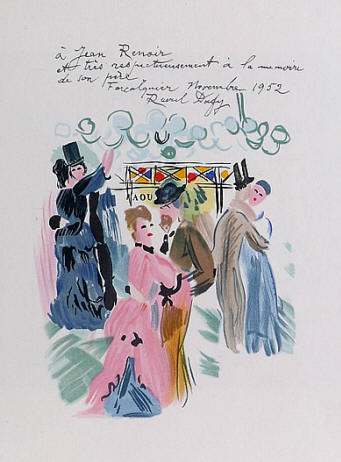 à Jean Renoir
et très respectueusement à la memoire
de son père
Forcalquier Novembre 1952
Raoul Dufy
RAOU